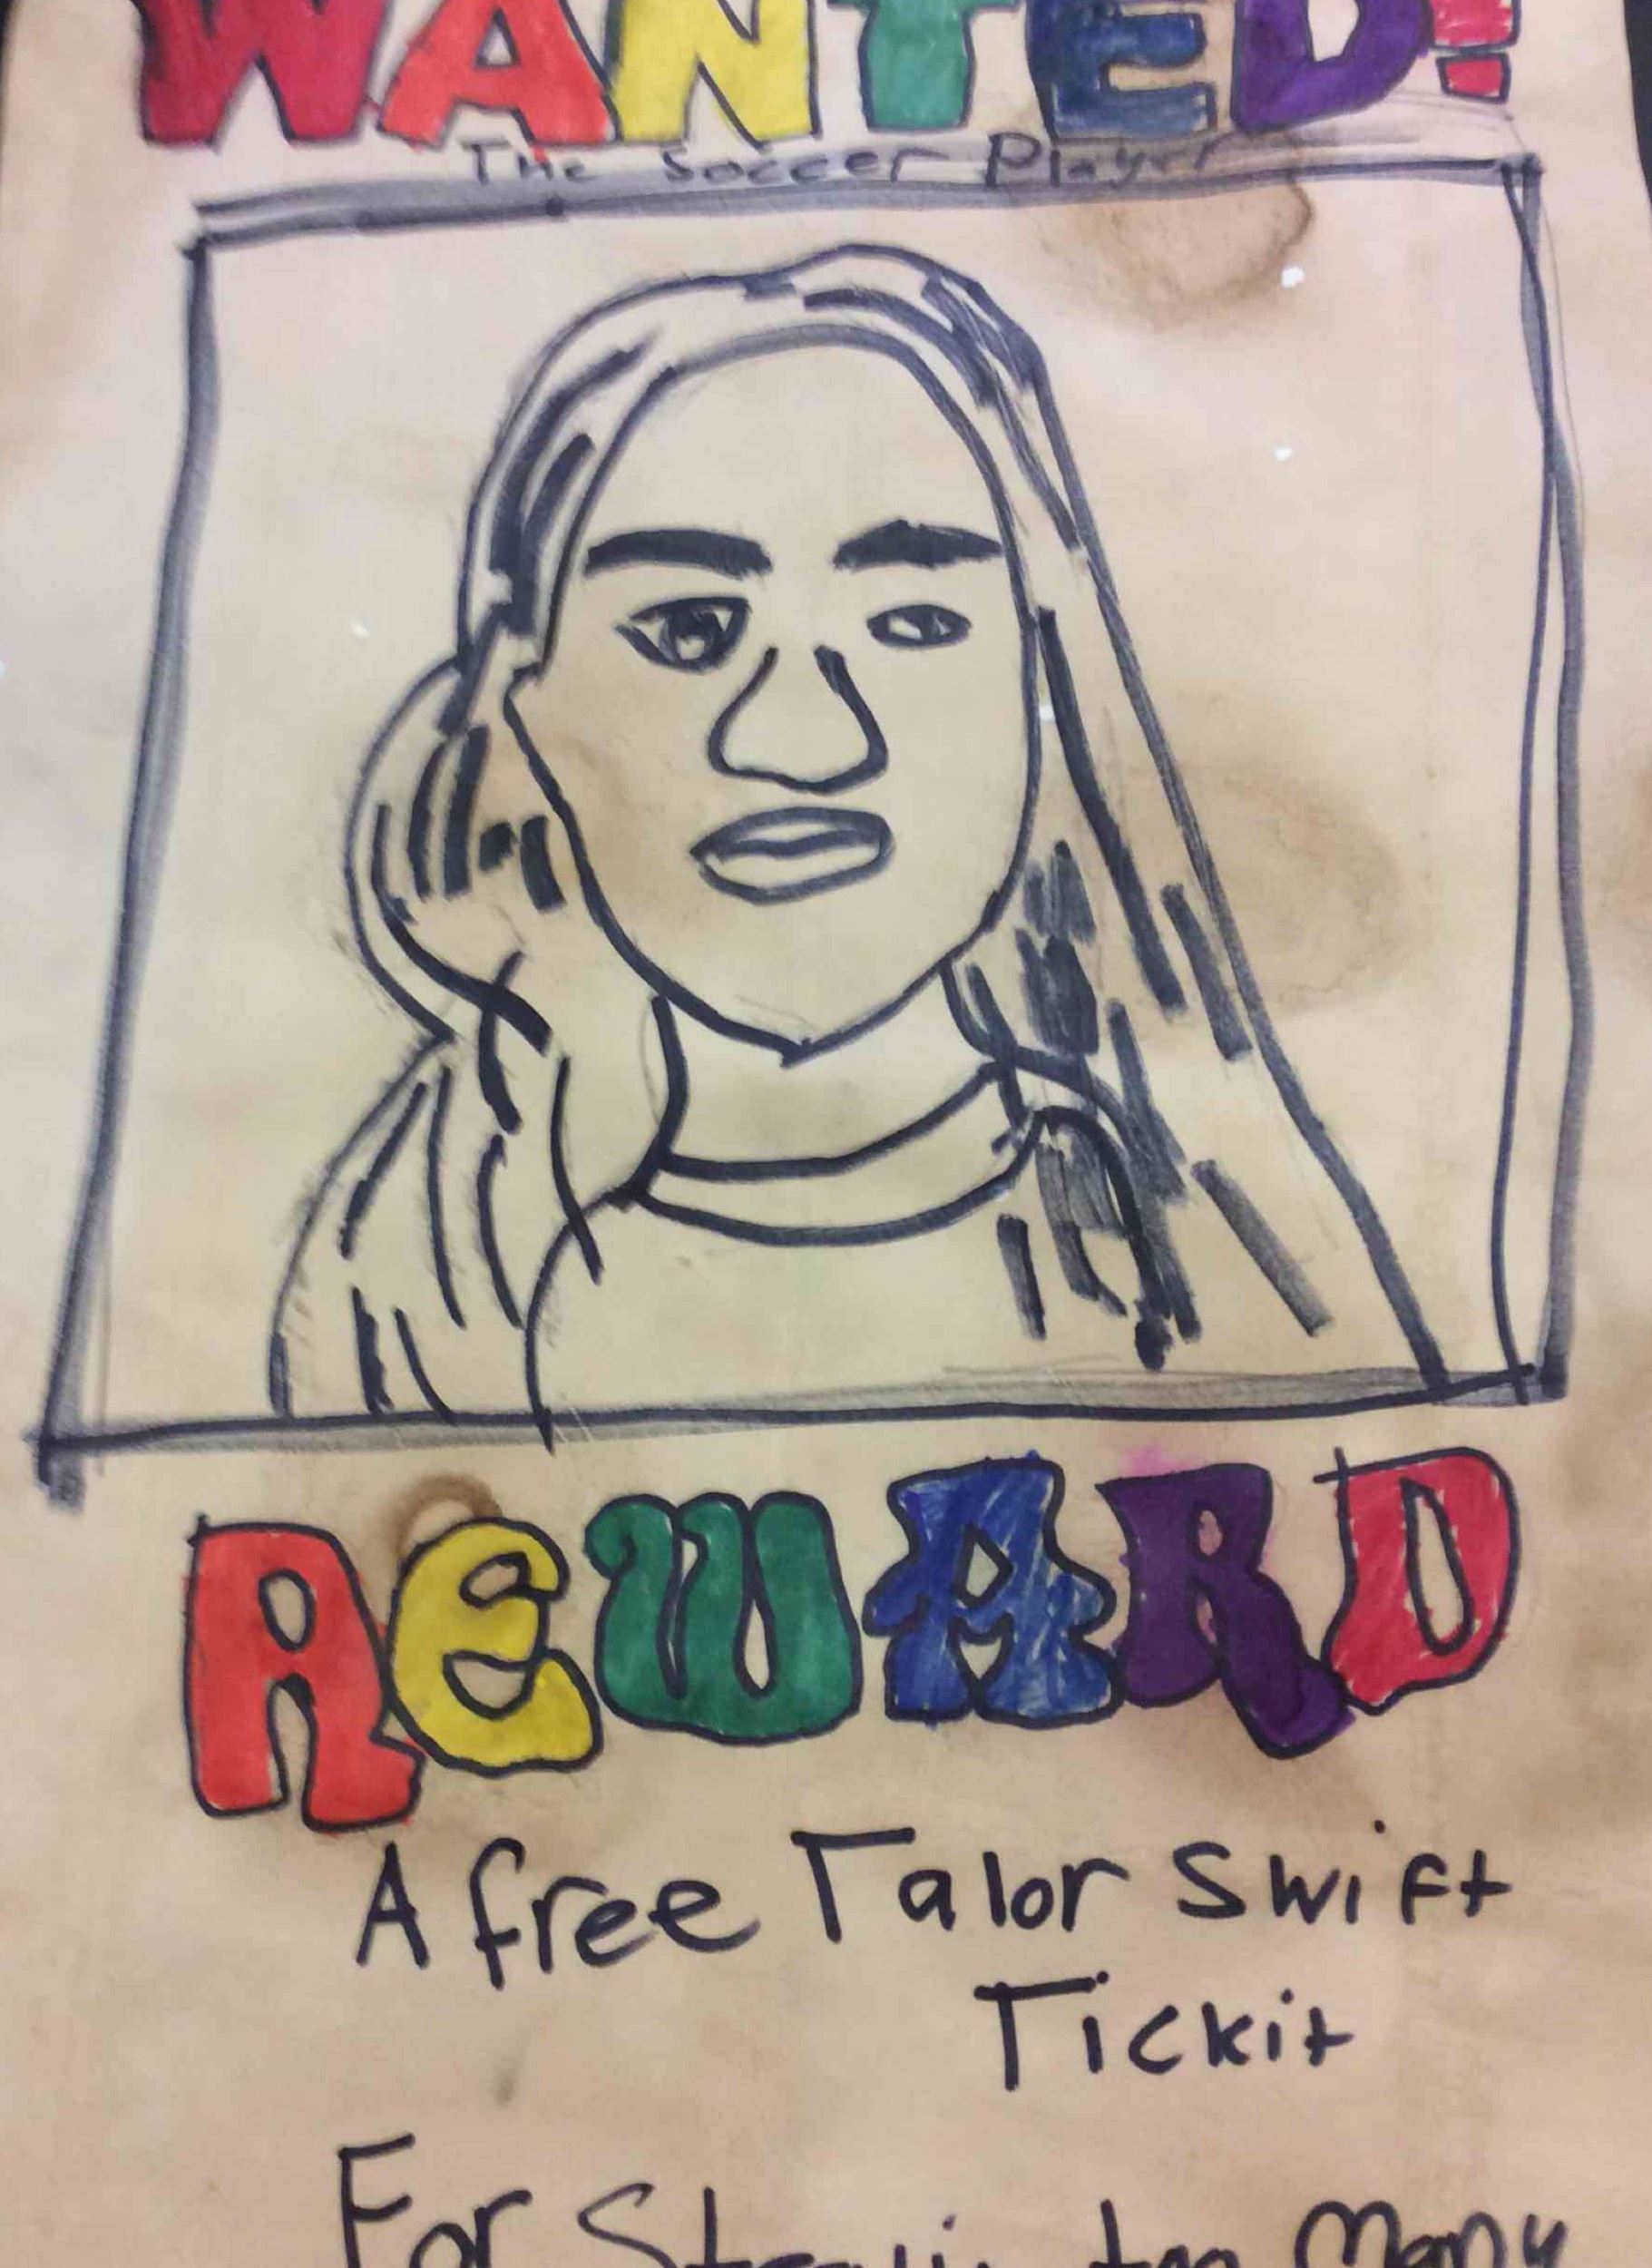 WANTED!
The Soccer Player
REWARD
A free Talor Swift
Tickit
For too many